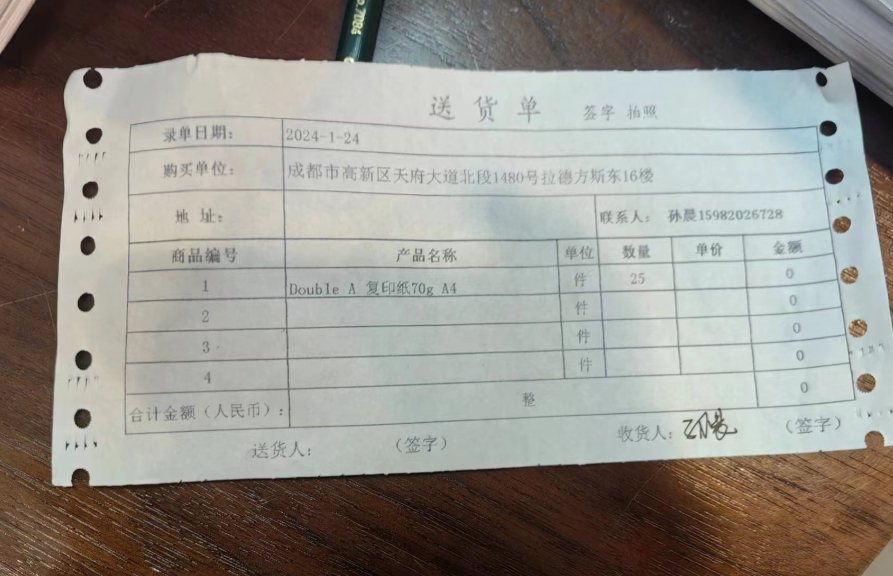 送货单 签字 拍照
录单日期： 2024-1-24
购买单位： 成都市高新区天府大道北段1480号拉德方斯东16楼
地 址： 联系人： 孙晨15982026728
商品编号 产品名称 单位 数量 单价 金额
1 Double A 复印纸70g A4 件 25 0
2 件 0
3 件 0
4 件 0
合计金额（人民币）： 整 0
送货人： （签字） 收货人： （签字）